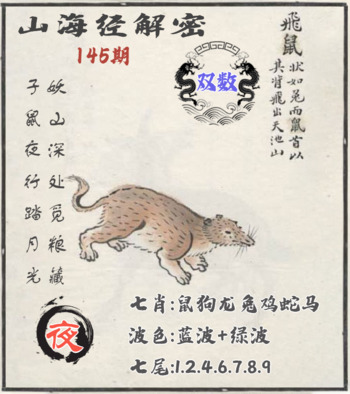 山海经解密
145期
双数
飛鼠
状如兔而鼠首以
其背飛出天池山
子鼠夜行踏月光
妖山深处觅粮藏
夜
七肖:鼠狗龙兔鸡蛇马
波色:蓝波+绿波
七尾:1.2.4.6.7.8.9